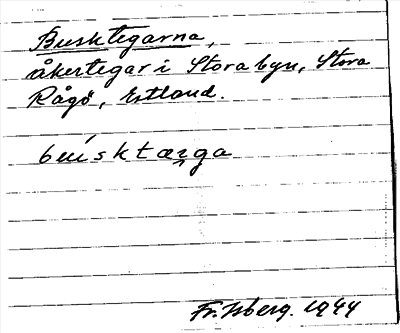 Busktegarna,
åkertegar i Stora byn, Stora
Rågö, Estland.
búsktæꝛga
Fr. Isberg. 1944